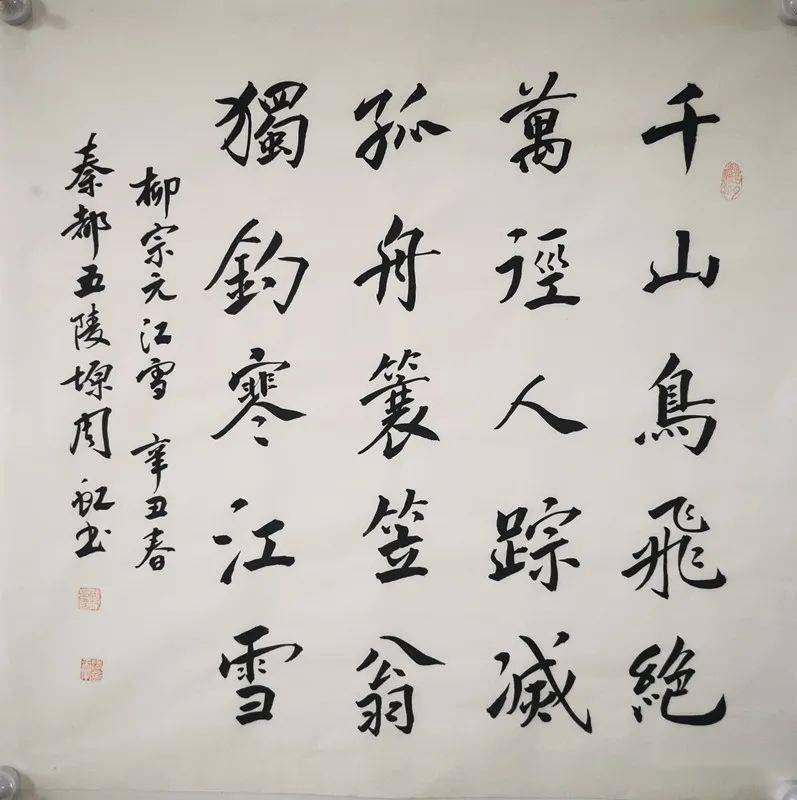 千山鳥飛絕
萬徑人踪滅
孤舟簑笠翁
獨釣寒江雪
柳宗元江雪 辛丑春
秦都五陵塬周虹书